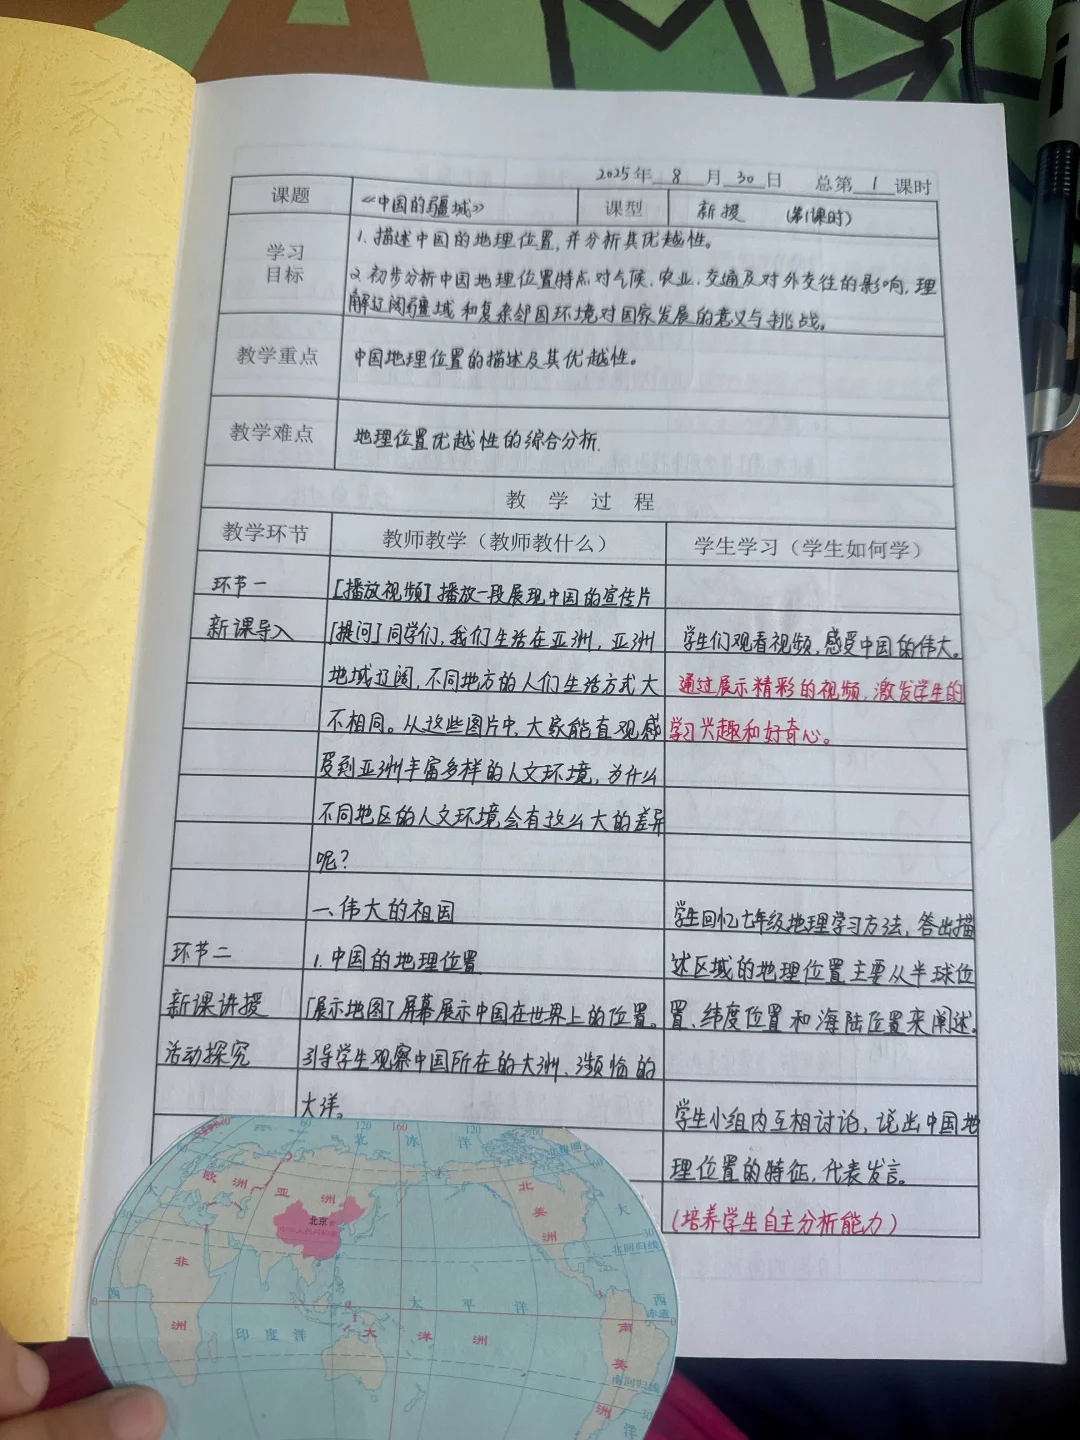 2025年 8 月 30 日 总第 1 课时
课题 《中国的疆域》 课型 新授 (第1课时)
学习目标
1. 描述中国的地理位置,并分析其优越性。
2. 初步分析中国地理位置特点对气候、农业、交通及对外交往的影响,理
解辽阔疆域和复杂邻国环境对国家发展的意义与挑战。
教学重点 中国地理位置的描述及其优越性。
教学难点 地理位置优越性的综合分析.
教 学 过 程
教学环节 教师教学(教师教什么) 学生学习(学生如何学)
环节一
新课导入
[播放视频] 播放一段展现中国的宣传片
[提问] 同学们,我们生活在亚洲,亚洲
地域辽阔,不同地方的人们生活方式大
不相同。从这些图片中,大家能直观感
受到亚洲丰富多样的人文环境,为什么
不同地区的人文环境会有这么大的差异
呢?
学生们观看视频,感受中国的伟大。
通过展示精彩的视频,激发学生的
学习兴趣和好奇心。
环节二
新课讲授
活动探究
一、伟大的祖国
1. 中国的地理位置
「展示地图」屏幕展示中国在世界上的位置。
引导学生观察中国所在的大洲、濒临的
大洋。
学生回忆七年级地理学习方法,答出描
述区域的地理位置主要从半球位
置、纬度位置和海陆位置来阐述。
学生小组内互相讨论,说出中国地
理位置的特征,代表发言。
(培养学生自主分析能力)
60 120 160 120
北 冰 洋
欧 洲
亚 洲
北京
北 美 洲
大
30
北回归线
非 洲
西
太 平 洋
西
0
赤道
0
印 度 洋
大 洋 洲
南 美 洲
南回归线
30
洋